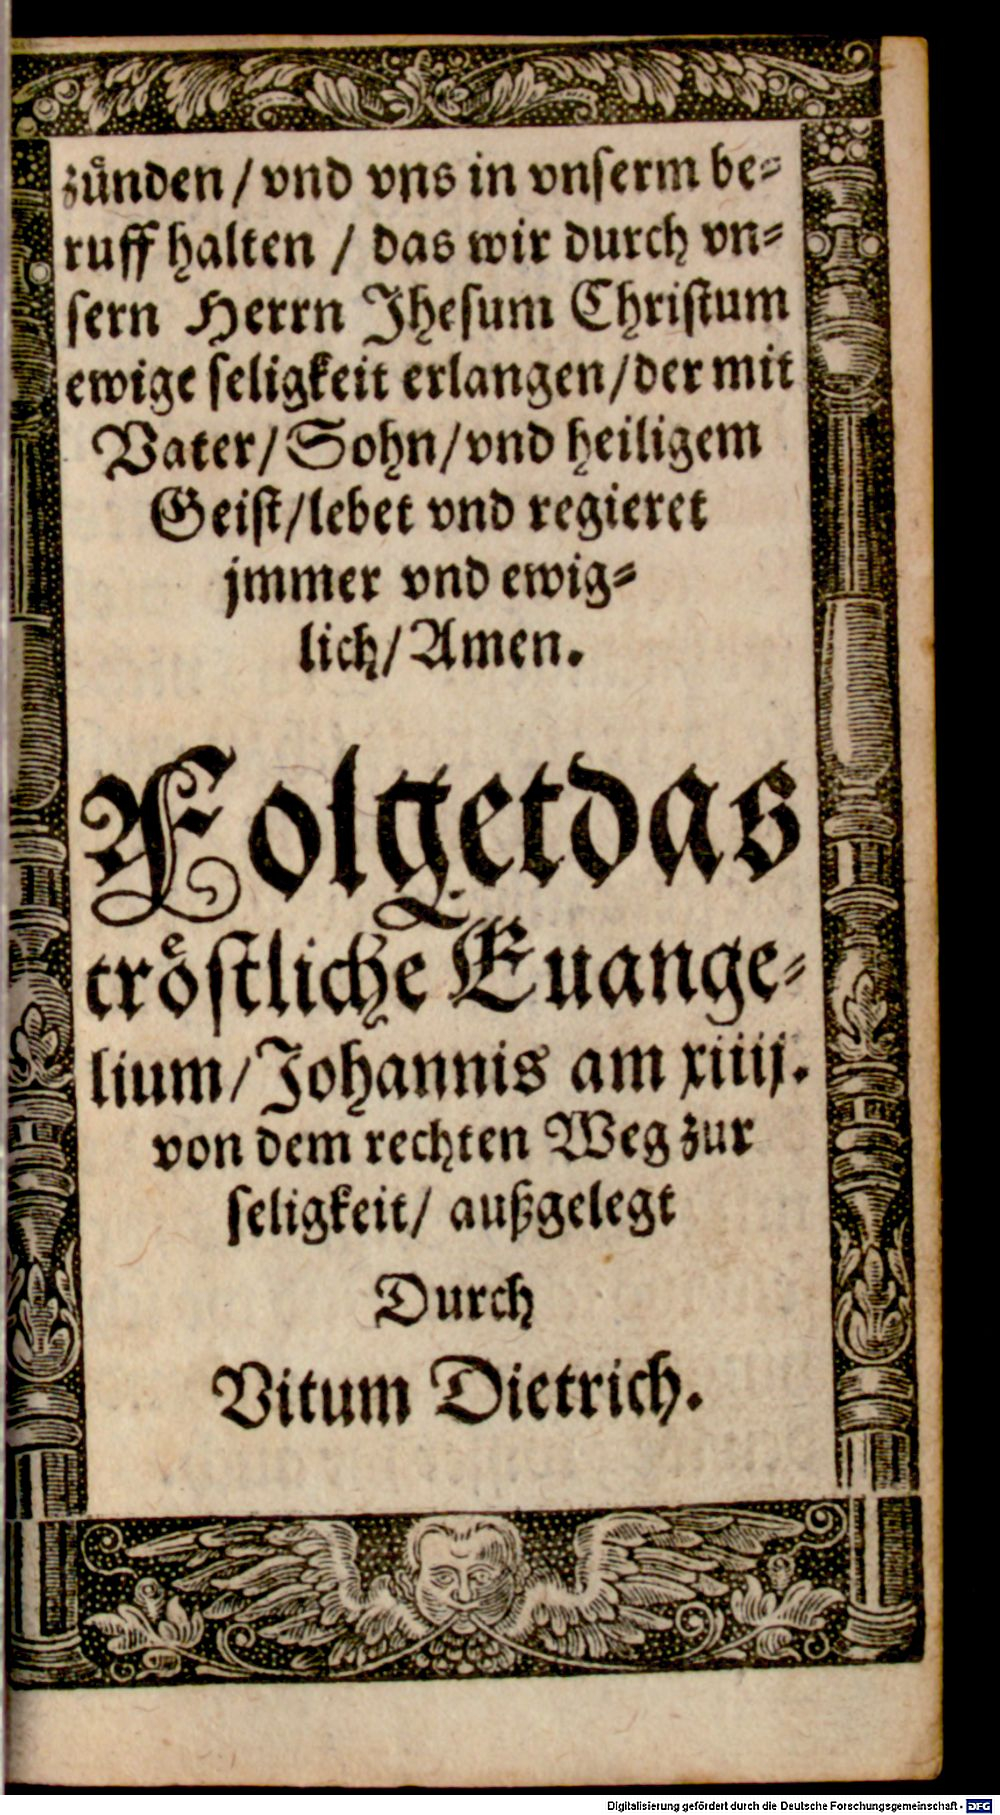 zuͤnden / vnd vns in vnserm be⸗
ruff halten / das wir durch vn⸗
sern Herrn Jhesum Christum
ewige seligkeit erlangen/der mit
Vater/Sohn/vnd heiligem
Geist/lebet vnd regieret
jmmer vnd ewig⸗
lich/Amen.
Folgetdas
troͤstliche Euange⸗
lium/Johannis am xiiij.
von dem rechten Weg zur
seligkeit/ außgelegt
Durch
Vitum Dietrich.
Digitalisierung gefördert durch die Deutsche Forschungsgemeinschaft - DFG